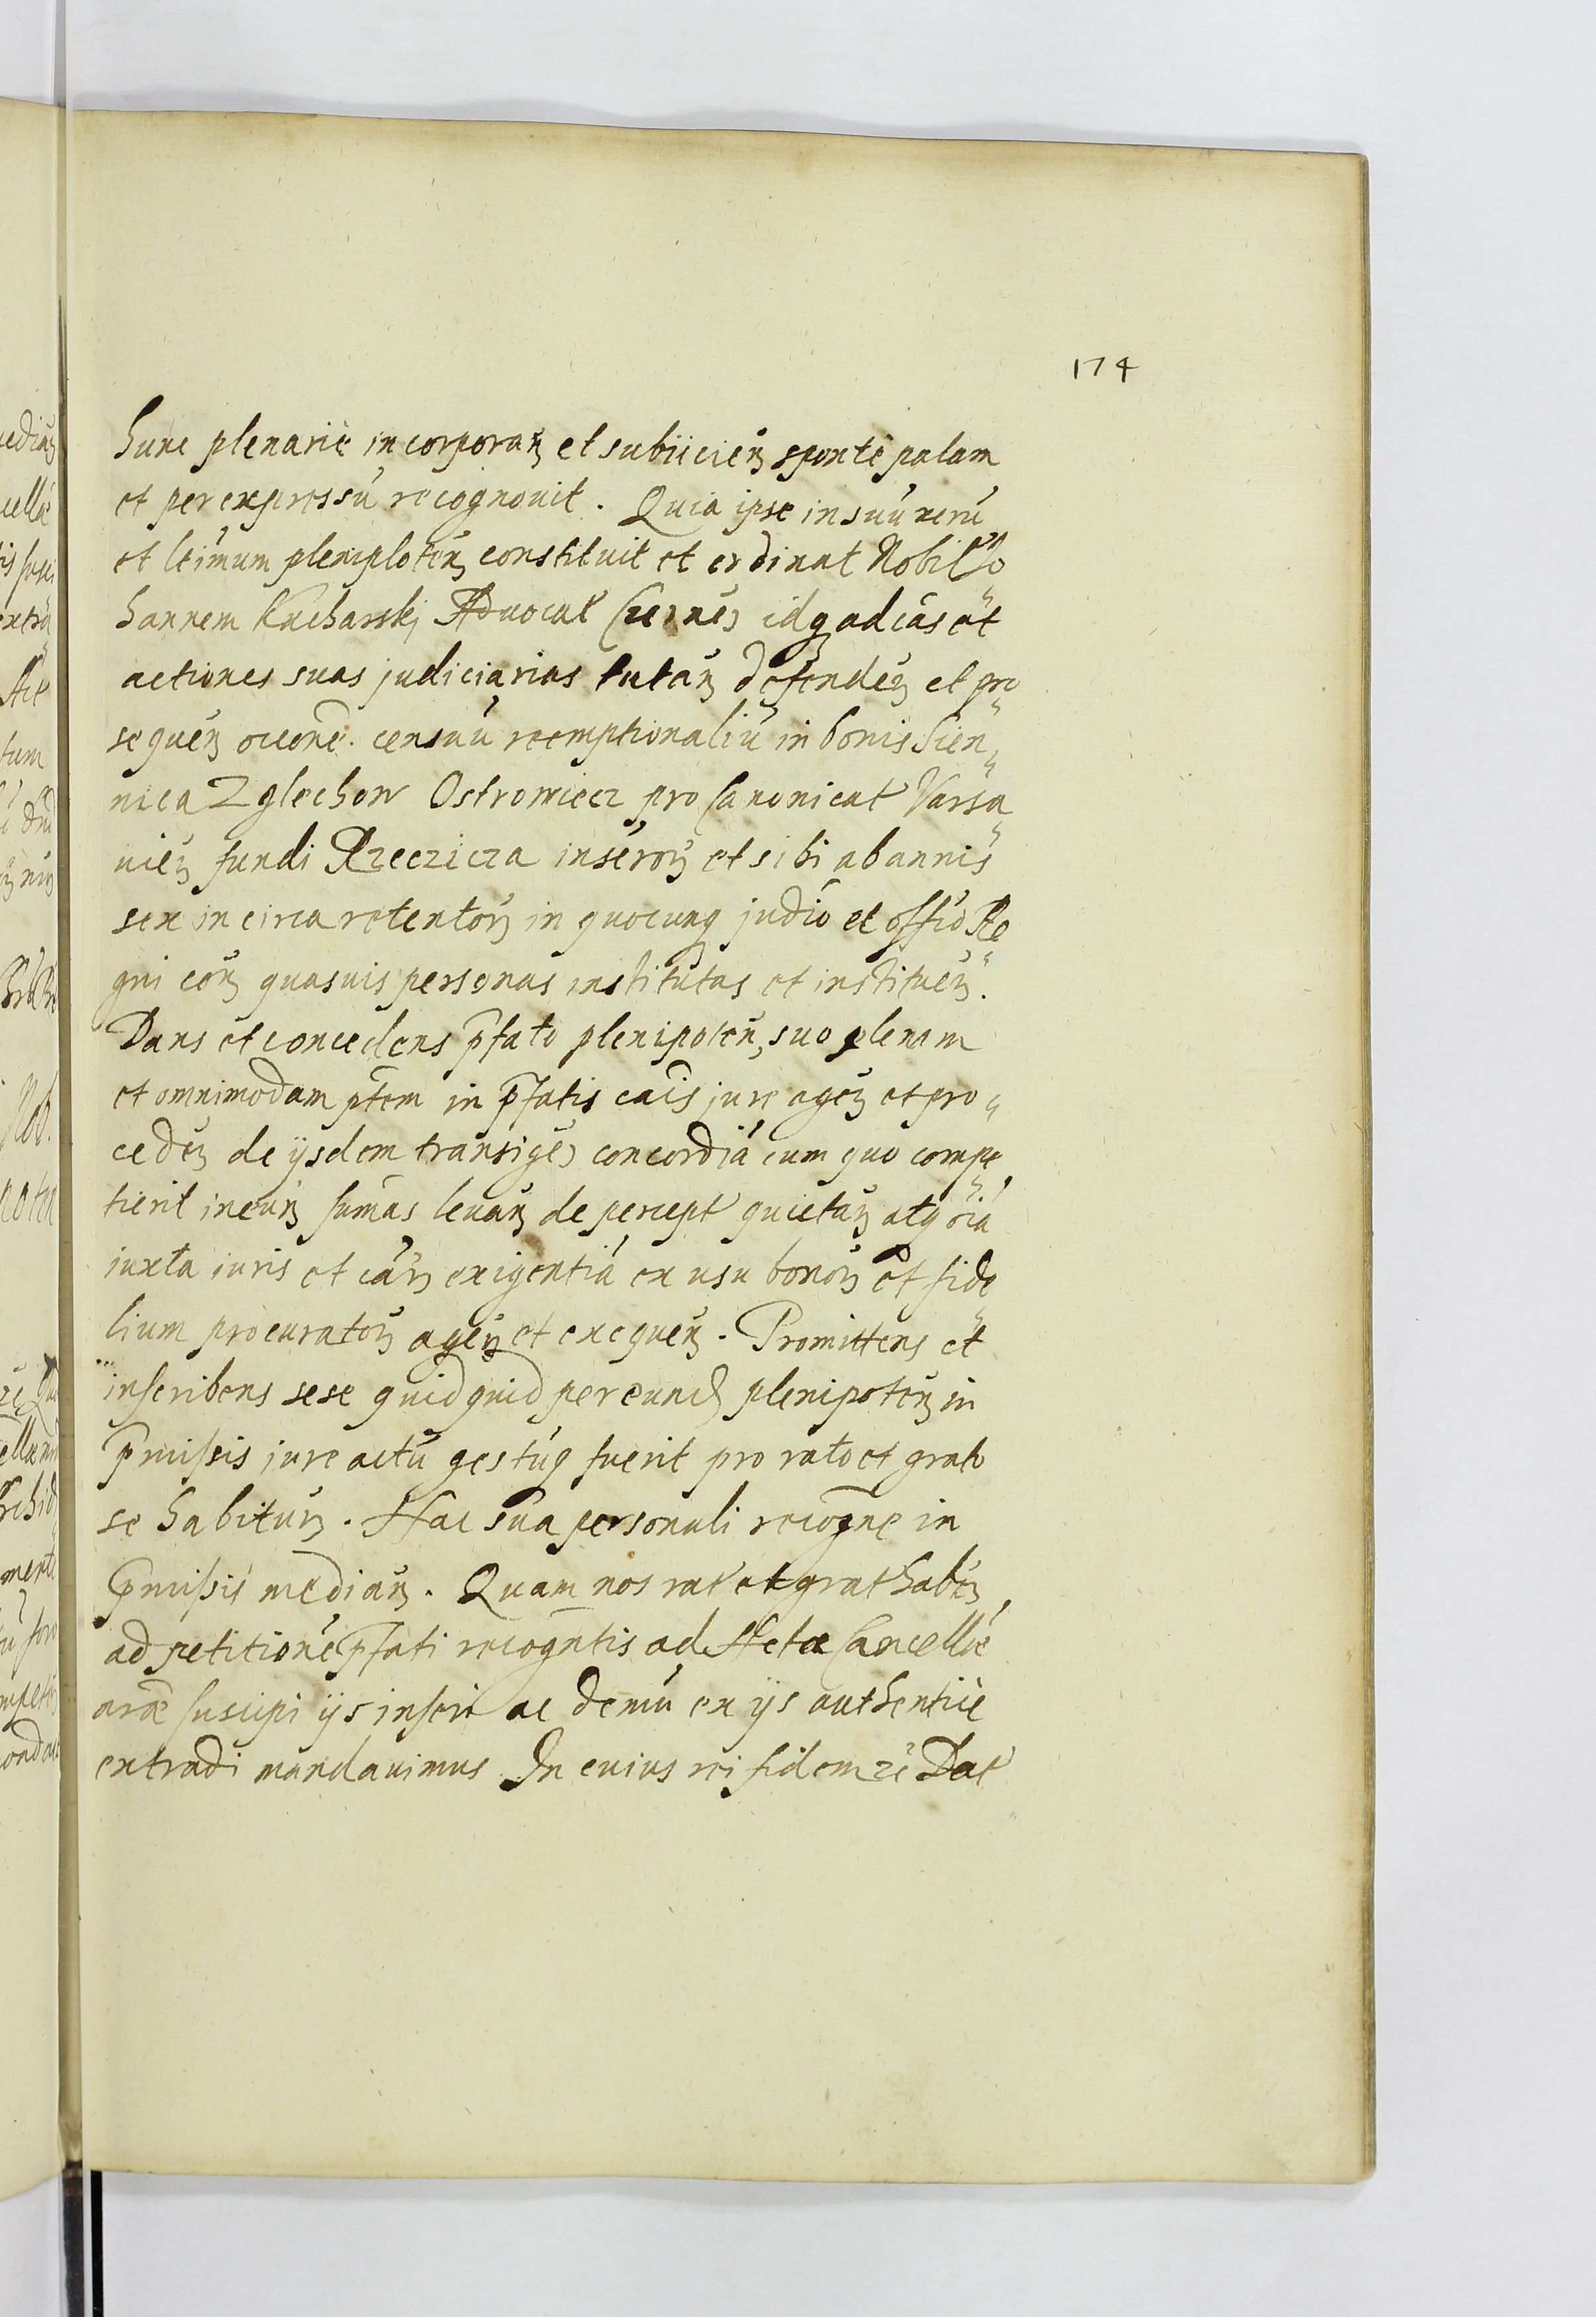 174
hunc plenarie incorporań et subiicień sponte palam
et per expressū recognouit. Quia ipse in suū verū
et ltimum pleniplotēn constituit et ordinat Nobil Jo
hannem Kucharskj Aduocat Czernēn idq ad cās et
actiones suas judiciarias tutań defendeń et pro
sequeń occone. censuū reemptionaliū in bonis Sien
nica Zglechow Ostrowiecz pro Canonicat Varsa
vień fundi Rzeczicza inseroʒ et sibi ab annis
sex in circa retentoʒ in quocunq judio et offio Re
gni coń quasuis personas institutas et instituēń.
Dans et concedens p̄fato plenipoteń suo plenam
et omnimodam ptem in p̄fatis cais jure ageń et pro
cedeń de ijsdem transigeń concordiā cum quo compe
tierit ineuń sumas leuań de percept quietań atq oīa
iuxta iuris et cāʒ exigentiā ex usu bonoʒ et fide
lium procuratoʒ ageń et exequeń. Promittens et
inscribens sese quidquid per eund plenipoteń in
p̄missis jure actū gestūq fuerit pro rato et grato
se habituʒ. Hac sua personali recogne in
p̄missis mediań. Quam nos rat et grat habēń
ad petitionē p̄fati recogntis ad Acta Cancelliæ
nræ suscipi ijs inseri ac demū ex ijs authentice
extradi mandauimus In cuius rei fidem zc Dat